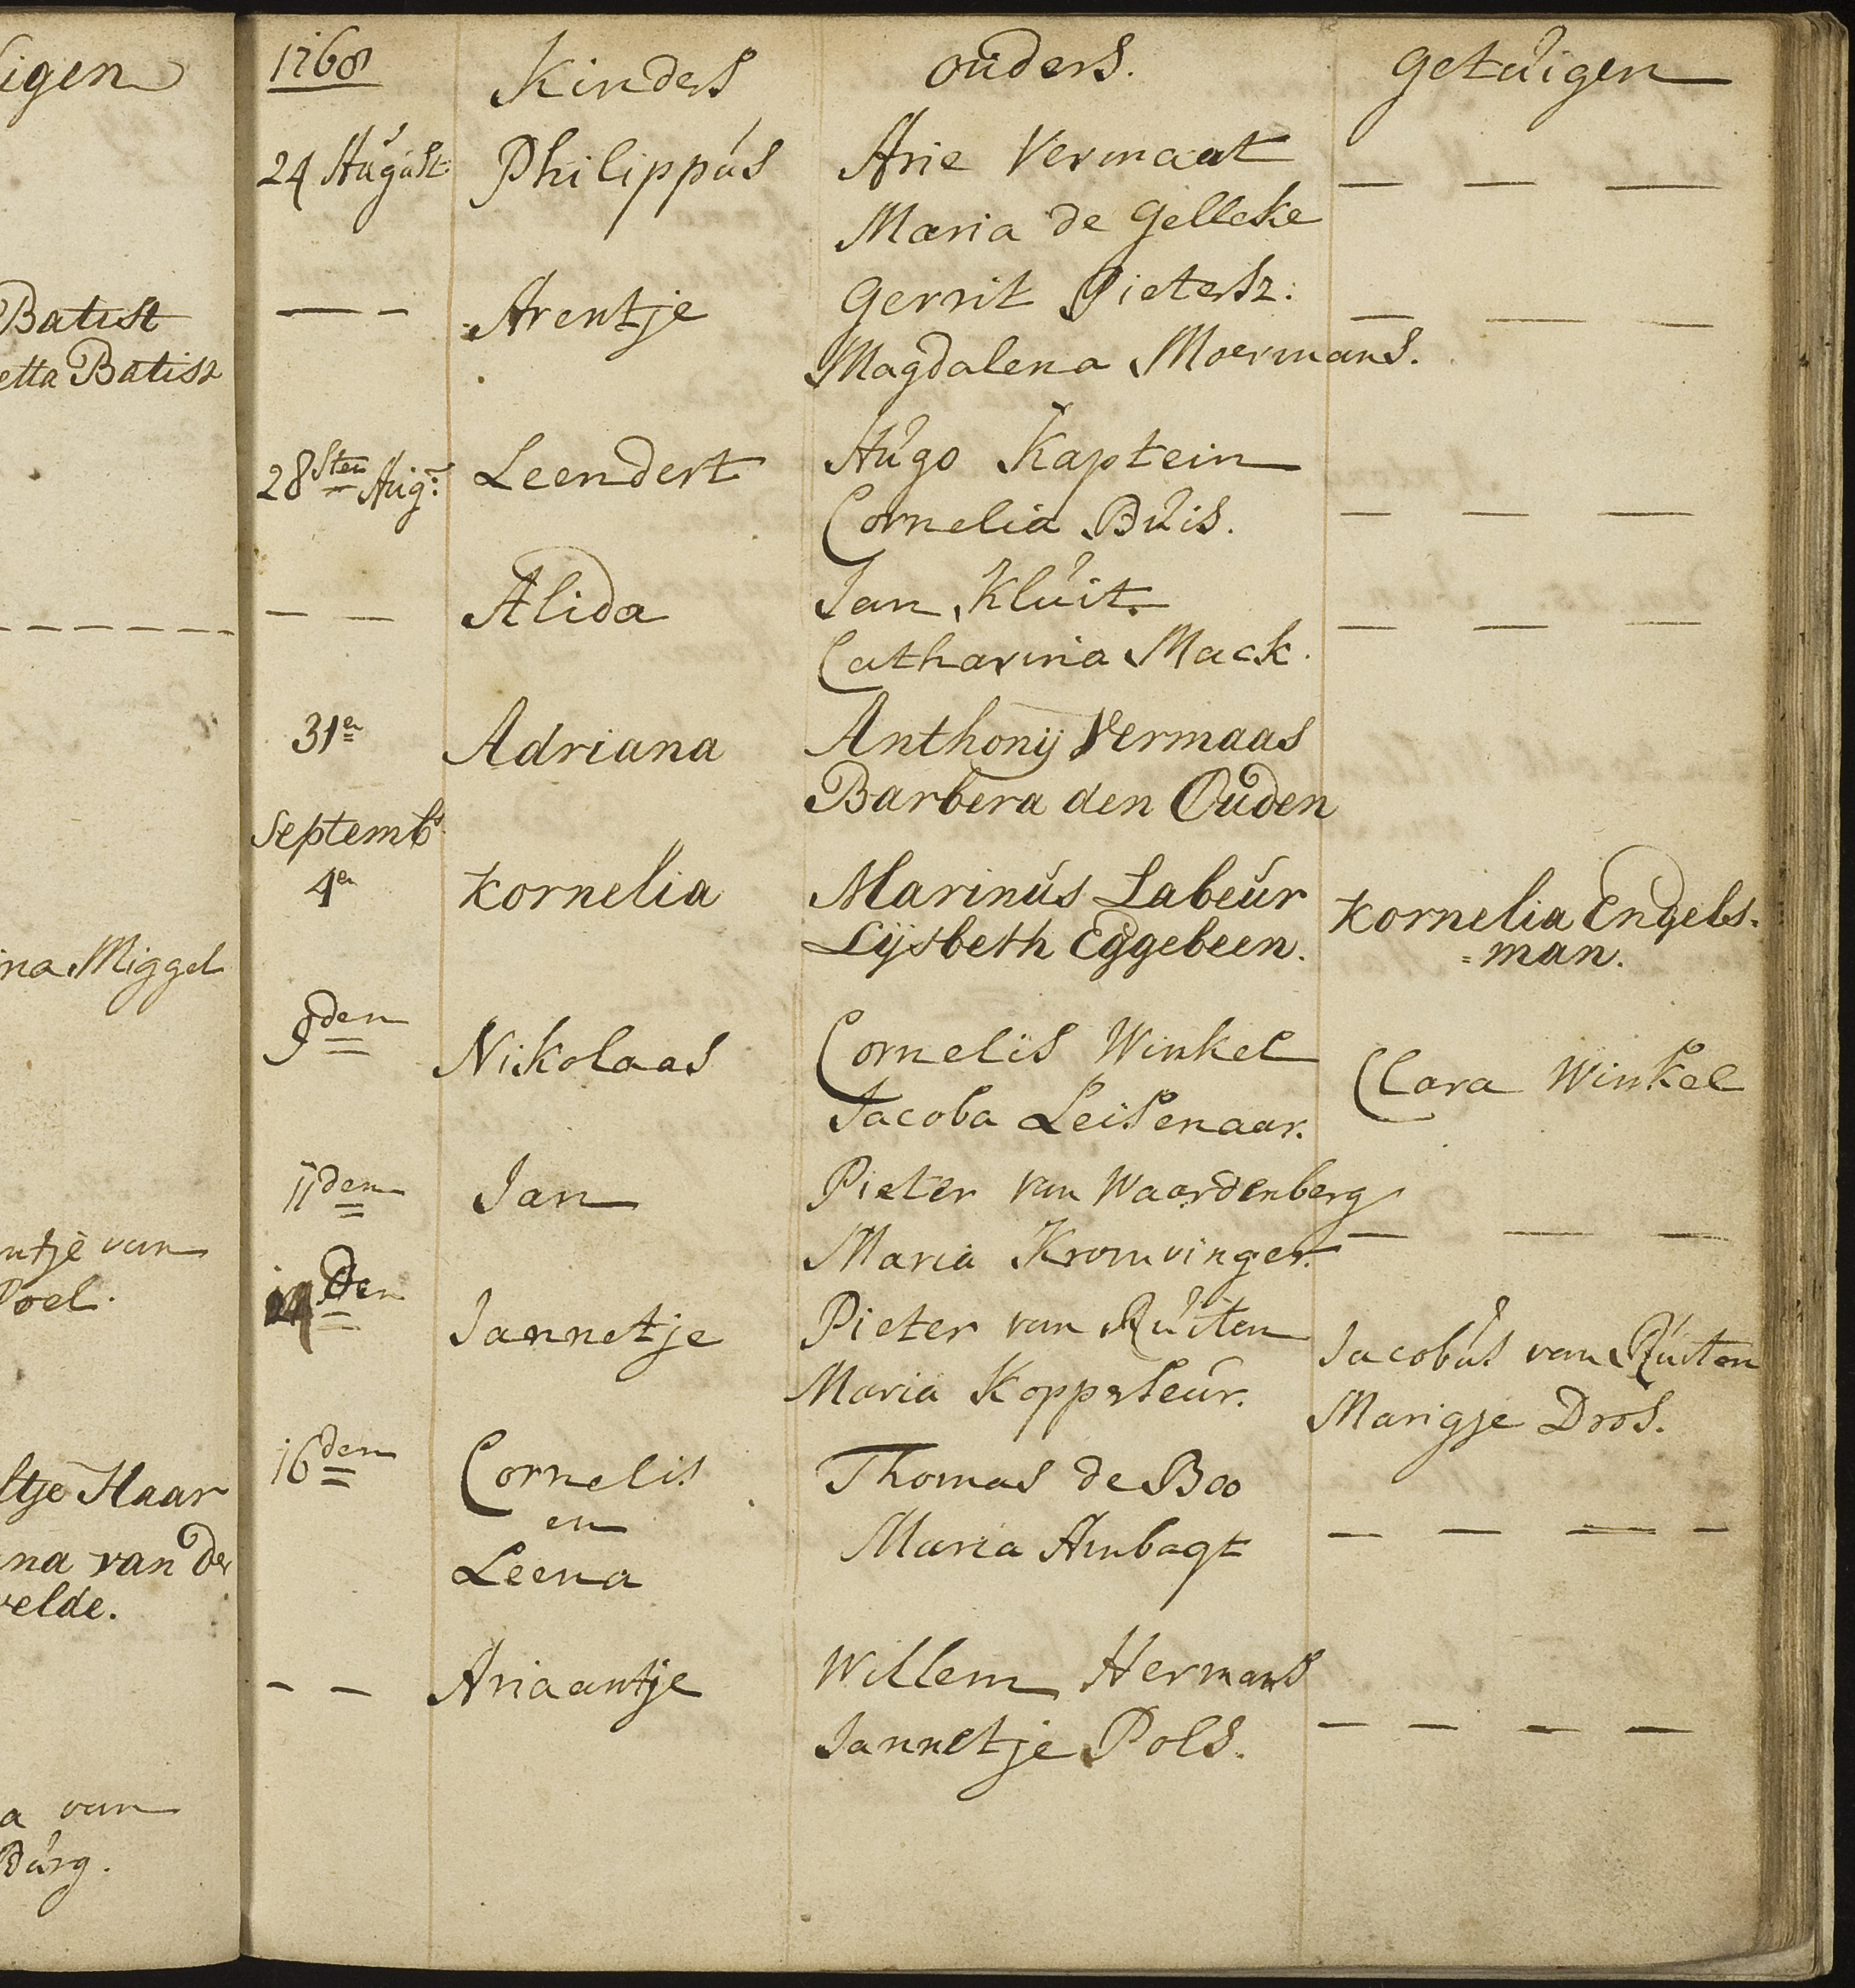 igen
Batist
etta Batist
na Miggel
ntje van
Poel.
ltje Haar
na van der
velde.
a van
Burg.
1768 Kinders ouders. getuigen
24 August Philippus Arie Vermaat — — —
Maria de Gelleke
— — Arentje Gerrit Pietersz: — — —
Magdalena Moermans.
28sten Aug: Leendert Hugo Kaptein
Cornelia Buis. — — —
— — Alida Jan Kluit. — — —
Catharina Mack.
31en Adriana Anthonij Vermaas
Barbera den Ouden
Septembr
4en Kornelia Marinus Labeur Kornelia Engels=
Lijsbeth Eggebeen. =man.
9den Nikolaas Cornelis Winkel Clara Winkel
Jacoba Leisenaar.
11den Jan Pieter van Waardenberg — — —
Maria Kromvinger.
14den Jannetje Pieter van Ruiten Jacobus van Ruiten
Maria Kopperseur. Marigje Dros.
16den Cornelis Thomas de Boo
en
Leena Maria Ambagt — — — —
— — Ariaantje Willem Hermans
Jannetje Pols. — — — —